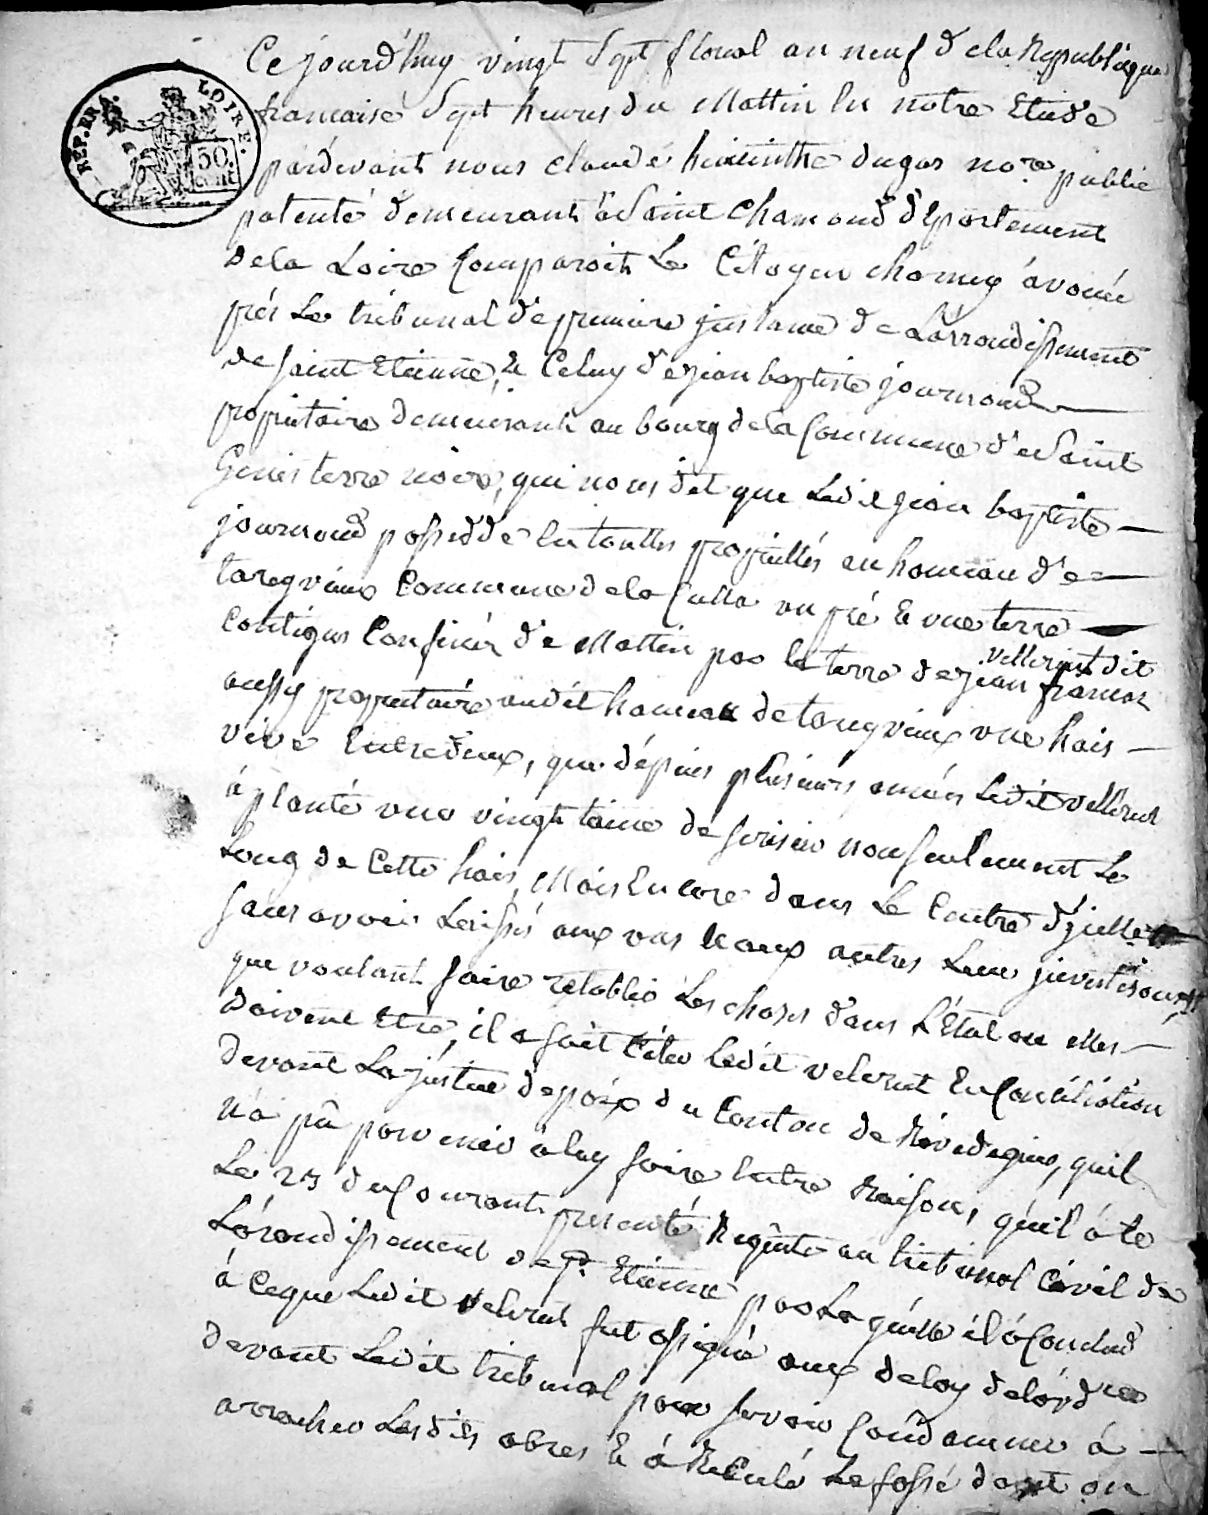 REP. FRA. LOIRE.
50. cent
Ce jourd'huy vingt Sept floreal an neuf de la Republique
francaise Sept heures du Mattin En notre Etude
pardevant nous claude hiacinthe dugas no.re public
patenté demeurant à Saint Chamond département
de la Loire Comparoit Le Citoyen avoüée
près Le tribunal de premiere jnstance de Larrondissement
de Saint Etienne, & Celuy de jean baptiste journoud
propriétaire demeurant au bourg de la Commune de Saint
Genis terre noire, qui nous dit que Ledit jean baptiste
journoud possedde En touttes propriettés au hameau de
Commune de la Culla un pré & une terre
Contigus Confinés de Mattin par la terre de jean
Vellerut dit
aussy propriétaire audit hameau de une hais
vive Entredeux, que dépuis plusieurs années Ledit Vellerut
à planté une vingtaine de serisier non seulement Le
Long de Cette hais, Mais Encore dans Le Centre d'jcelle
sans avoir Laissés aux uns & aux autres Leur
que voulant faire retablir Les choses dans L'Etat ou elles
doivent Etre, il a fait Citer Ledit velerut En Conciliation
devant La justice de paix du Canton de Rivedegier, quil
n'a pû parvenir a luy faire Entre Raison, qu'il à le
Le 23 du Courant presenté Requête au tribunal Civil de
Larondissement de St. Etienne par La quelle il à Conclud
à Ceque Ledit Velerut fut assigné aux de loy de lordre
devant Ledit tribunal pour se voir Condamner à
arracher Lesdits abres & à Reculé Le fossé dont on